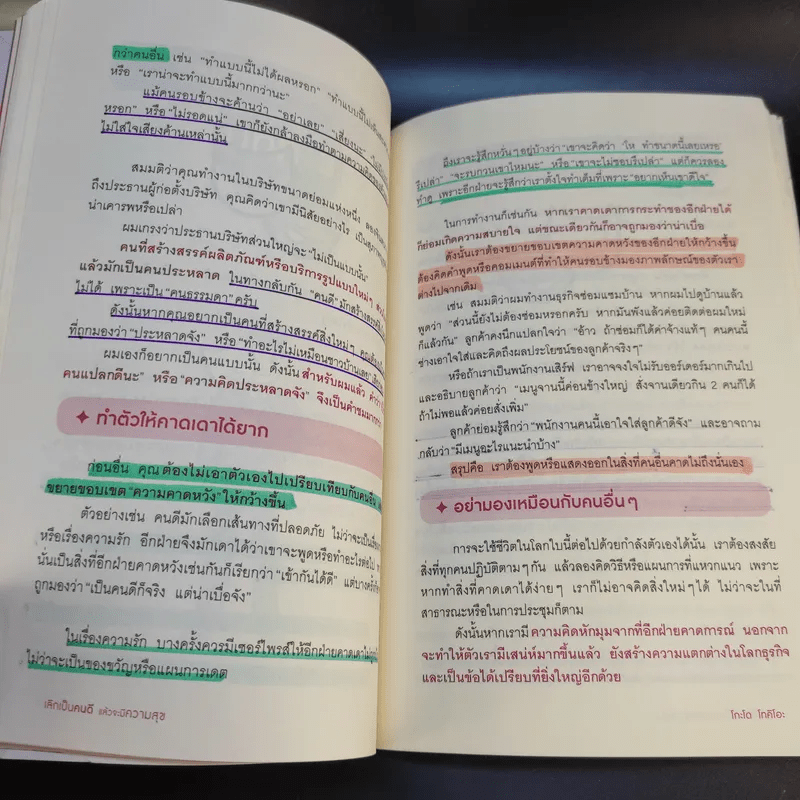 กว่าคนอื่น เช่น "ทำแบบนี้ไม่ได้ผลหรอก" "ทำแบบนี้
หรือ "เราน่าจะทำแบบนี้มากกว่านะ"
แม้คนรอบข้างจะค้านว่า "อย่าเลย" "เสี่ยงนะ"
หรอก" หรือ "ไม่รอดแน่" เขาก็ยังกล้าลงมือทำตามความคิด
ไม่ใส่ใจเสียงค้านเหล่านั้น
สมมติว่าคุณทำงานในบริษัทขนาดย่อมแห่งหนึ่ง
ถึงประธานผู้ก่อตั้งบริษัท คุณคิดว่าเขามีนิสัยอย่างไร
น่าเคารพหรือเปล่า
ผมเกรงว่าประธานบริษัทส่วนใหญ่จะ "ไม่เป็นแบบนั้น"
คนที่สร้างสรรค์ผลิตภัณฑ์หรือบริการรูปแบบใหม่ๆ
แล้วมักเป็นคนประหลาด ในทางกลับกัน "คนดี" มักสร้างสรรค์
ไม่ได้ เพราะเป็น "คนธรรมดา" ครับ
ดังนั้นหากคุณอยากเป็นคนที่สร้างสรรค์สิ่งใหม่ๆ
ที่ถูกมองว่า "ประหลาดจัง" หรือ "ทำอะไรไม่เหมือนชาวบ้านเลย"
ผมเองก็อยากเป็นคนแบบนั้น ดังนั้น สำหรับผมแล้ว
คนแปลกดีนะ" หรือ "ความคิดประหลาดจัง" จึงเป็นคำชม
✦ ทำตัวให้คาดเดาได้ยาก
ก่อนอื่น คุณต้องไม่เอาตัวเองไปเปรียบเทียบกับคนอื่น
ขยายขอบเขต "ความคาดหวัง" ให้กว้างขึ้น
ตัวอย่างเช่น คนดีมักเลือกเส้นทางที่ปลอดภัย ไม่ว่าจะเป็น
หรือเรื่องความรัก อีกฝ่ายจึงมักเดาได้ว่าเขาจะพูดหรือทำอะไรต่อไป
นั่นเป็นสิ่งที่อีกฝ่ายคาดหวังเช่นกันก็เรียกว่า "เข้ากันได้ดี" แต่บางครั้ง
ถูกมองว่า "เป็นคนดีก็จริง แต่น่าเบื่อจัง"
ในเรื่องความรัก บางครั้งควรมีเซอร์ไพรส์ให้อีกฝ่ายคาดเดาไม่
ไม่ว่าจะเป็นของขวัญหรือแผนการเดต
เลิกเป็นคนดี แล้วจะมีความสุข
ถึงเราจะรู้สึกหวั่นๆ อยู่บ้างว่า "เขาจะคิดว่า 'โห ทำขนาดนี้เลยเหรอ'
รึเปล่า" "จะรบกวนเขาไหมนะ" หรือ "เขาจะไม่ชอบรึเปล่า" แต่ก็ควรลอง
ทำดู เพราะอีกฝ่ายจะรู้สึกว่าเราตั้งใจทำเต็มที่เพราะ "อยากเห็นเขาดีใจ"
ในการทำงานก็เช่นกัน หากเราคาดเดาการกระทำของอีกฝ่ายได้
ก็ย่อมเกิดความสบายใจ แต่ขณะเดียวกันก็อาจถูกมองว่าน่าเบื่อ
ดังนั้นเราต้องขยายขอบเขตความคาดหวังของอีกฝ่ายให้กว้างขึ้น
ต้องคิดคำพูดหรือคอมเมนต์ที่ทำให้คนรอบข้างมองภาพลักษณ์ของตัวเรา
ต่างไปจากเดิม
เช่น สมมติว่าผมทำงานธุรกิจซ่อมแซมบ้าน หากผมไปดูบ้านแล้ว
พูดว่า "ส่วนนี้ยังไม่ต้องซ่อมหรอกครับ หากมันพังแล้วค่อยติดต่อผมใหม่
ก็แล้วกัน" ลูกค้าคงนึกแปลกใจว่า "อ้าว ถ้าซ่อมก็ได้ค่าจ้างแท้ๆ คนคนนี้
ช่างเอาใจใส่และคิดถึงผลประโยชน์ของลูกค้าจริงๆ"
หรือถ้าเราเป็นพนักงานเสิร์ฟ เราอาจจงใจไม่รับออร์เดอร์มากเกินไป
และอธิบายลูกค้าว่า "เมนูจานนี้ค่อนข้างใหญ่ สั่งจานเดียวกิน 2 คนก็ได้
ถ้าไม่พอแล้วค่อยสั่งเพิ่ม"
ลูกค้าย่อมรู้สึกว่า "พนักงานคนนี้เอาใจใส่ลูกค้าดีจัง" และอาจถาม
กลับว่า "มีเมนูอะไรแนะนำบ้าง"
สรุปคือ เราต้องพูดหรือแสดงออกในสิ่งที่คนอื่นคาดไม่ถึงนั่นเอง
✦ อย่ามองเหมือนกับคนอื่นๆ
การจะใช้ชีวิตในโลกใบนี้ต่อไปด้วยกำลังตัวเองได้นั้น เราต้องสงสัย
สิ่งที่ทุกคนปฏิบัติตามๆ กัน แล้วลองคิดวิธีหรือแผนการที่แหวกแนว เพราะ
หากทำสิ่งที่คาดเดาได้ง่ายๆ เราก็ไม่อาจคิดสิ่งใหม่ๆ ได้ ไม่ว่าจะในที่
สาธารณะหรือในการประชุมก็ตาม
ดังนั้นหากเรามีความคิดหักมุมจากที่อีกฝ่ายคาดการณ์ นอกจาก
จะทำให้ตัวเรามีเสน่ห์มากขึ้นแล้ว ยังสร้างความแตกต่างในโลกธุรกิจ
และเป็นข้อได้เปรียบที่ยิ่งใหญ่อีกด้วย
โกะโด โทคิโอะ